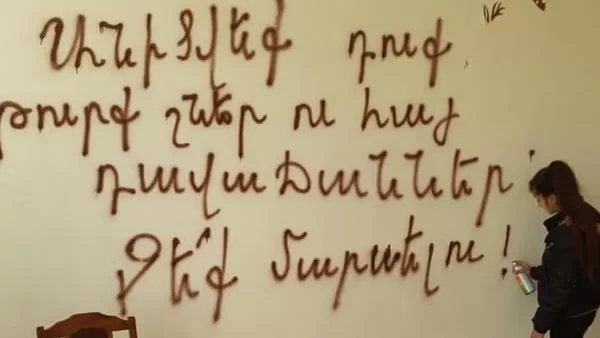 Անիծվեք դուք
թուրք շներ ու հայ
դավաճաններ՝
Չե՛ք մարսելու!